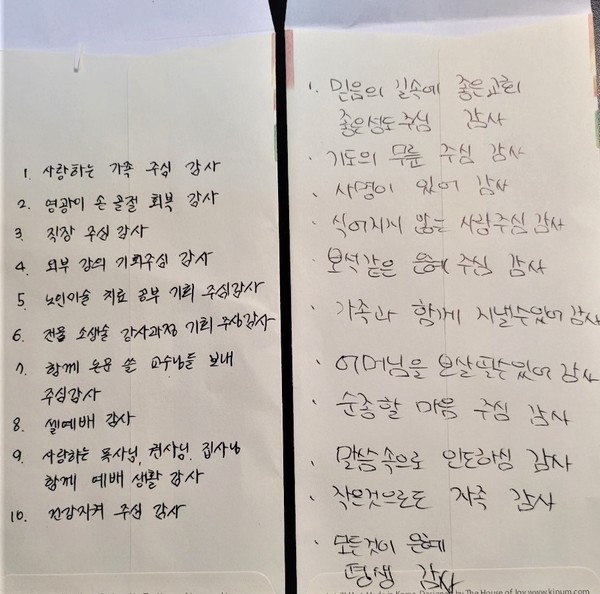 1. 사랑하는 가족 주심 감사
2. 영광이 손 골절 회복 감사
3. 직장 주심 감사
4. 외부 강의 기회주심 감사
5. 노인미술 치료 공부 기회 주심감사
6. 전문 소생술 강사과정 기회 주심감사
7. 함께 논문 쓴 교수님들 보내
주심감사
8. 셀예배 감사
9. 사랑하는 목사님, 권사님, 집사님
함께 예배 생활 감사
10. 건강지켜 주심 감사
1. 믿음의 길속에 좋은교회
좋은성도주심 감사
· 기도의 무릎 주심 감사
· 사명이 있어 감사
· 식어지지 않는 사랑주심 감사
· 보석같은 은혜 주심 감사
· 가족과 함께 지낼수있어 감사
· 어머님을 보살필수있어 감사
· 순종할 마음 주심 감사
· 말씀속으로 인도하심 감사
· 작은것으로도 자족 감사
· 모든것이 은혜
평생 감사
Designed by The House of Joy www.kipum.com